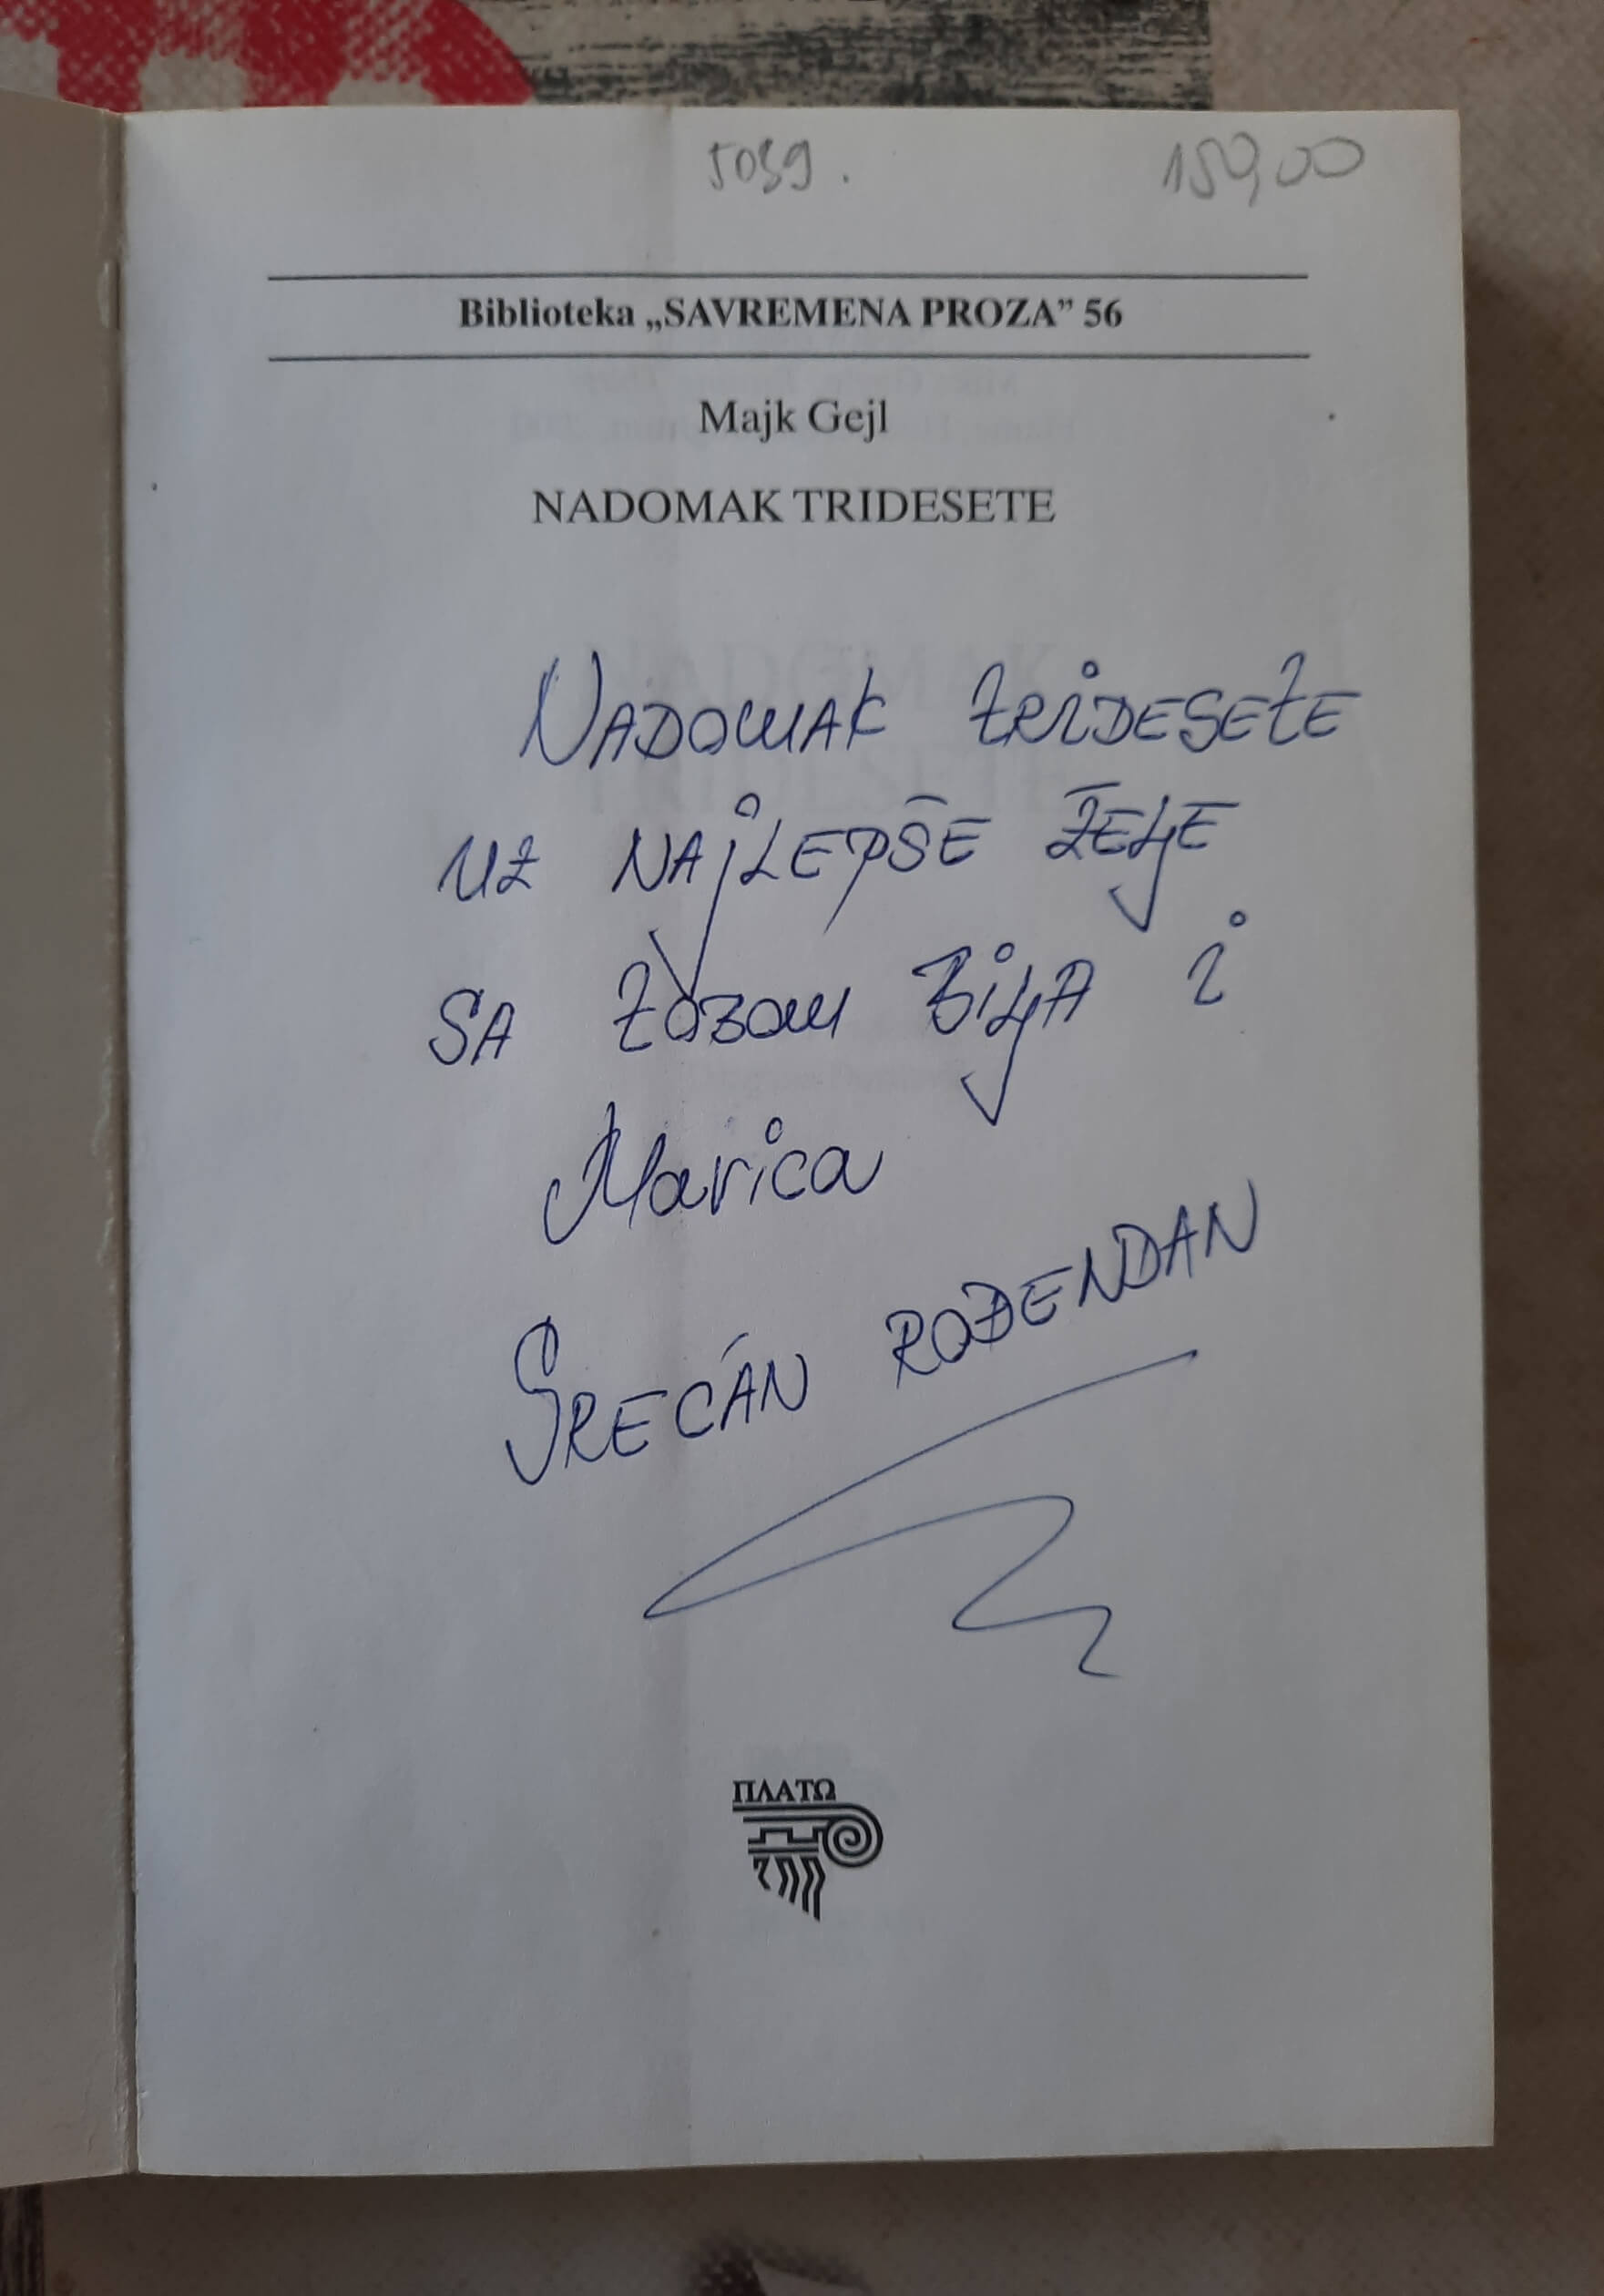 5039. 150,00
Biblioteka „SAVREMENA PROZA” 56
Majk Gejl
NADOMAK TRIDESETE
NADOMAK TRIDESETE
UZ NAJLEPŠE ŽELJE
SA TOBOM BILJA I
Marica
SREĆAN ROĐENDAN
ΠΛΑΤΩ